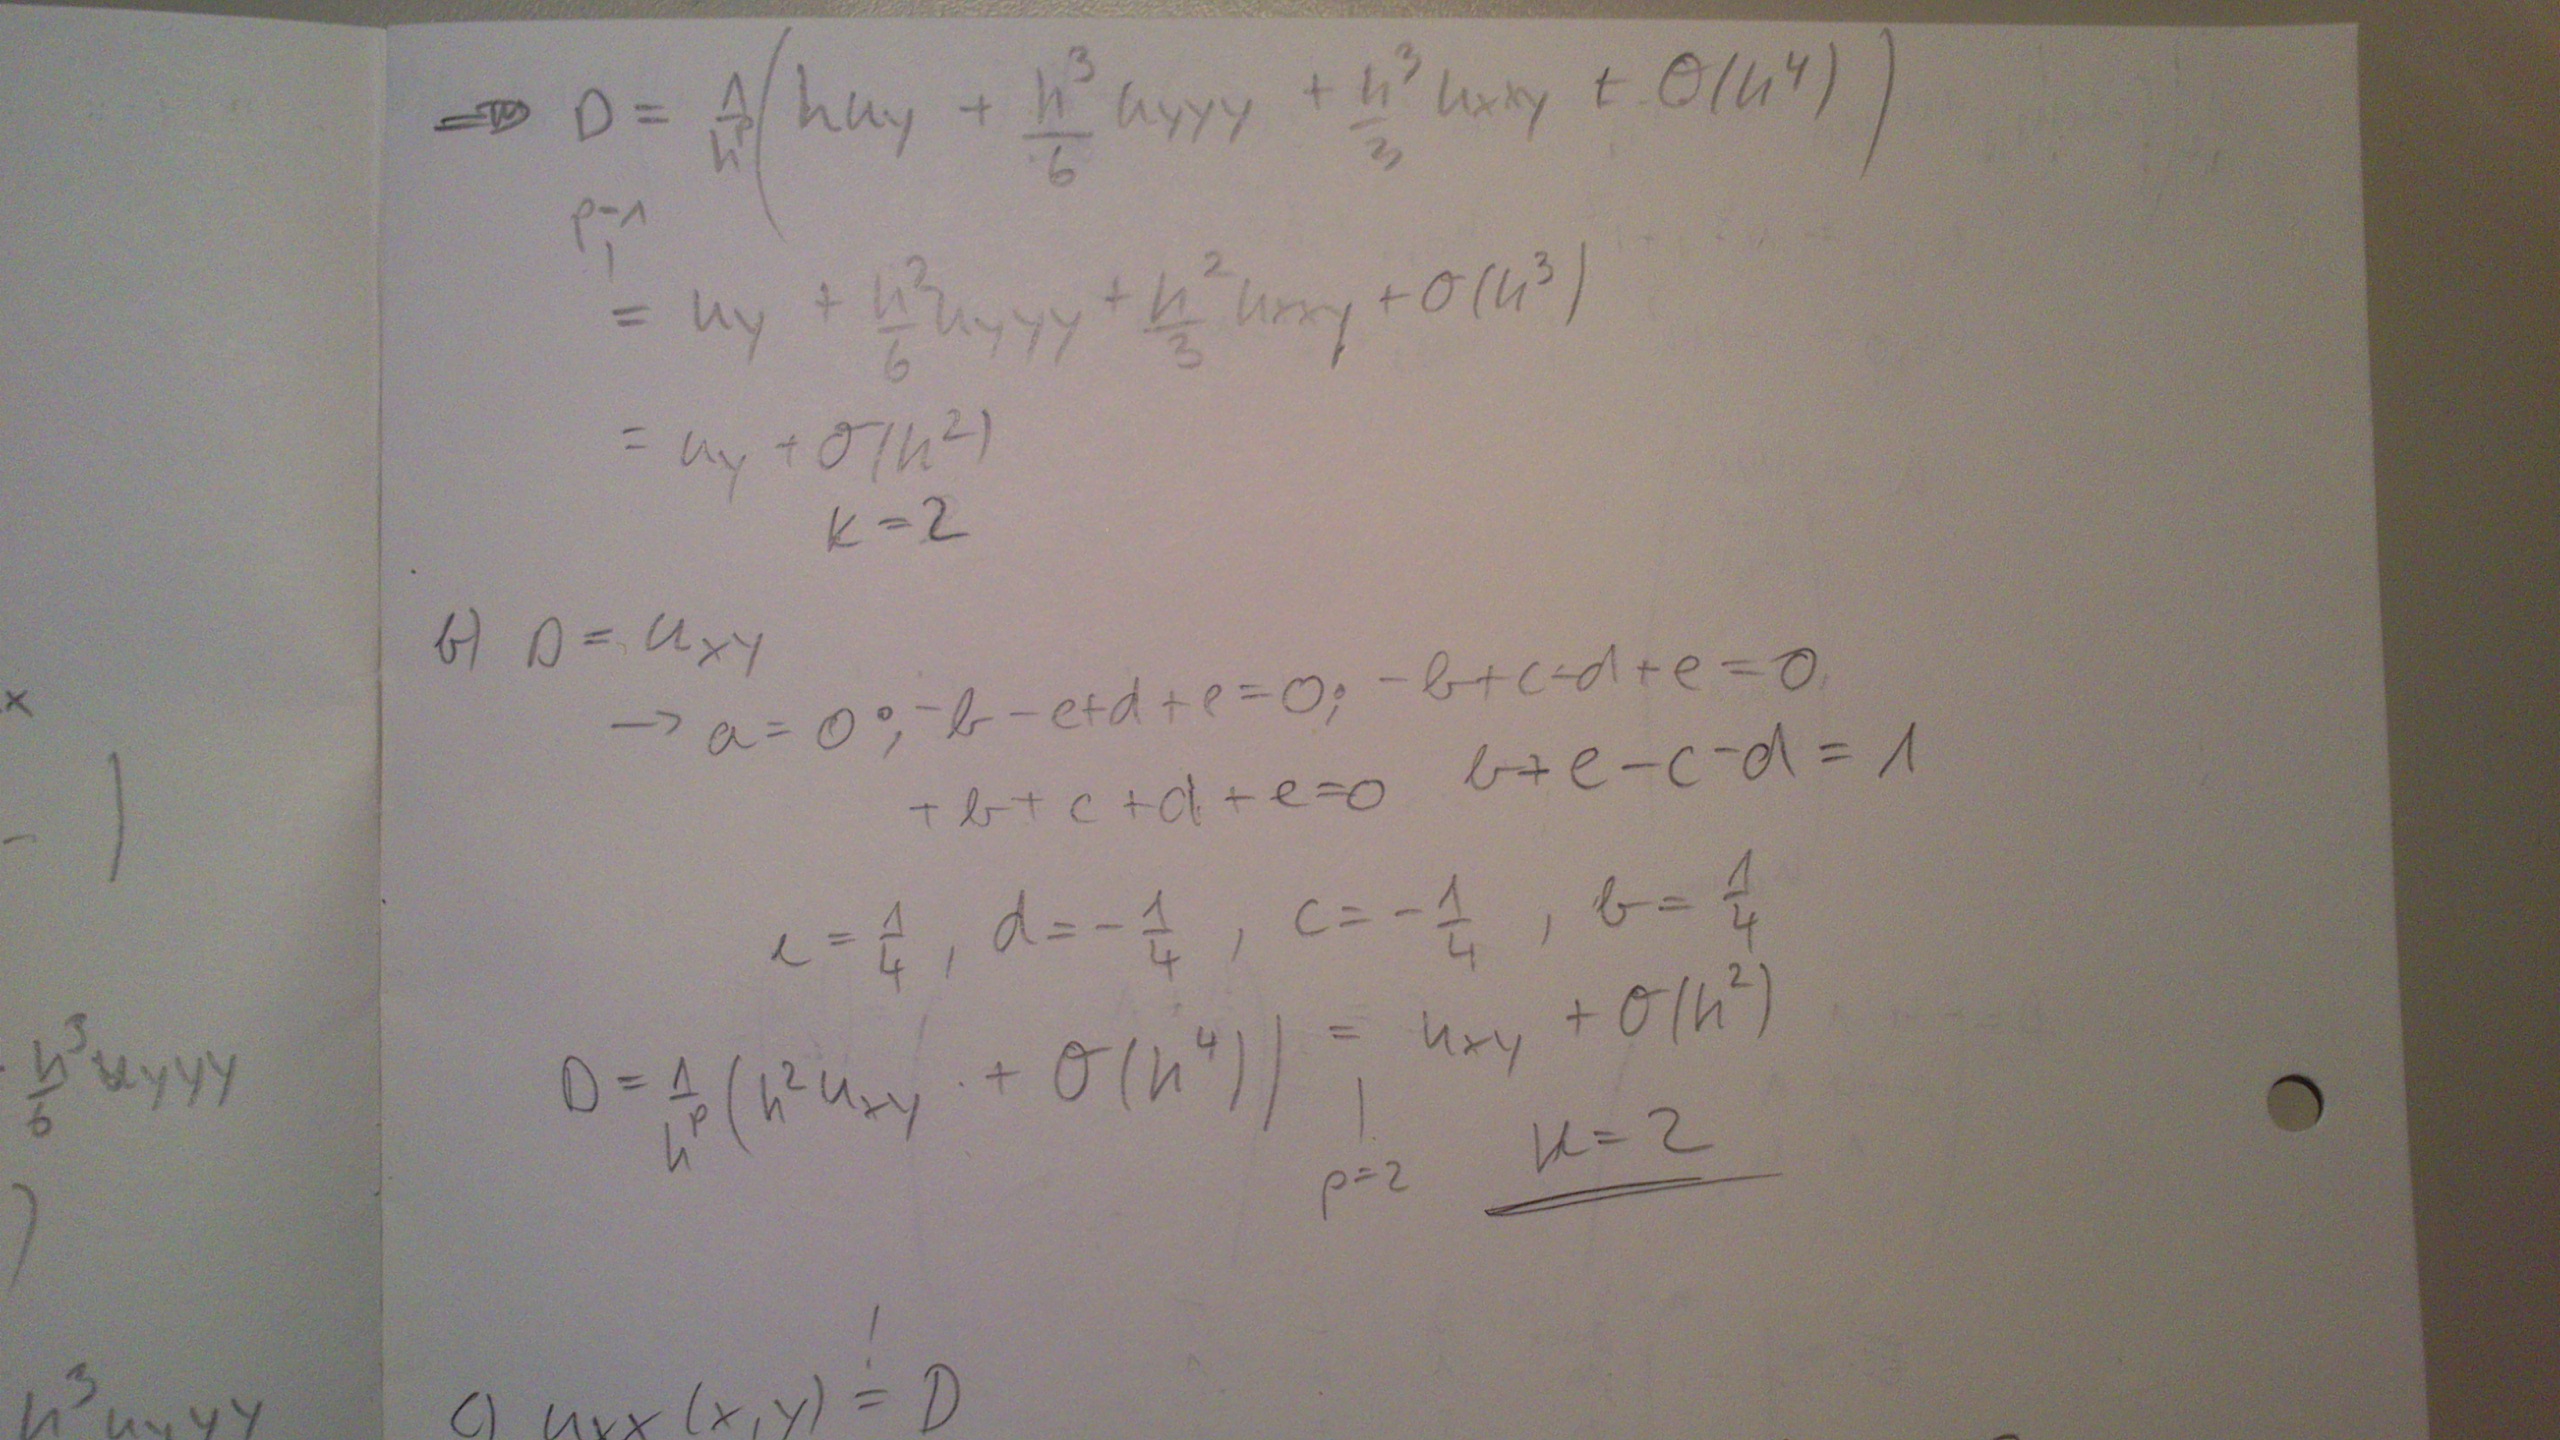 x
- )
h³/6 uyyy
)
h³ uyyy
⇒ D = 1/h^p (h uy + h³/6 uyyy + h³/3 uxxy + O(h⁴))
p=1
= uy + h²/6 uyyy + h²/3 uxxy + O(h³)
= uy + O(h²)
k=2
b) D = uxy
→ a=0; -b-e+d+e=0; -b+c-d+e=0
+b+c+d+e=0 b+e-c-d=1
e=1/4, d=-1/4, c=-1/4, b=1/4
D = 1/h^p (h² uxy + O(h⁴)) = uxy + O(h²)
p=2 k=2
!
c) uxx(x,y) = D